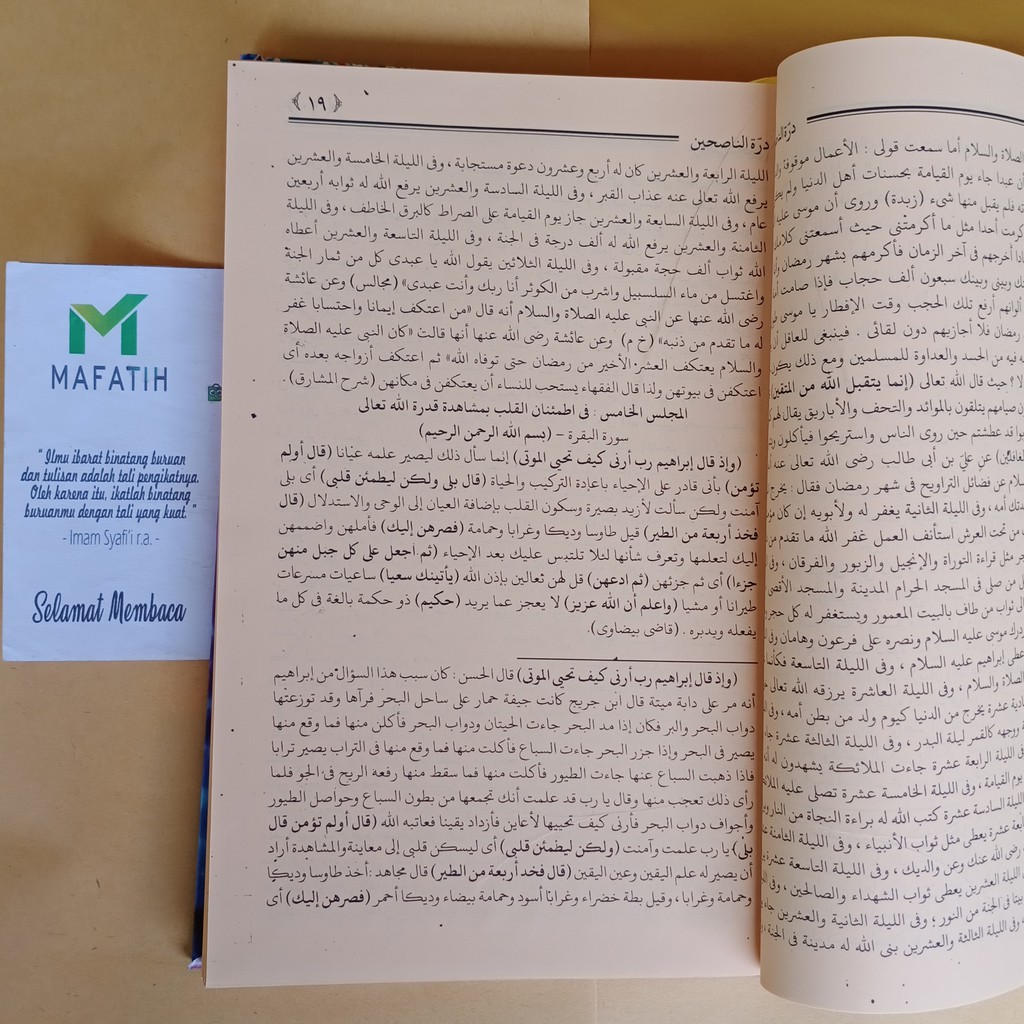 ﴿ ١٩ ﴾
درّة الناصحين
الليلة الرابعة والعشرين كان له أربع وعشرون دعوة مستجابة ، وفى الليلة الخامسة والعشرين
يرفع الله تعالى عنه عذاب القبر ، وفى الليلة السادسة والعشرين يرفع الله له ثوابه أربعين
عام ، وفى الليلة السابعة والعشرين جاز يوم القيامة على الصراط كالبرق الخاطف ، وفى الليلة
الثامنة والعشرين يرفع الله له ألف درجة فى الجنة ، وفى الليلة التاسعة والعشرين أعطاه
الله ثواب ألف حجة مقبولة ، وفى الليلة الثلاثين يقول الله يا عبدى كل من ثمار الجنة
واغتسل من ماء السلسبيل واشرب من الكوثر أنا ربك وأنت عبدى» (مجالس) وعن عائشة
رضى الله عنها عن النبى عليه الصلاة والسلام أنه قال «من اعتكف إيمانا واحتسابا غفر
له ما تقدم من ذنبه» (خ م) وعن عائشة رضى الله عنها أنها قالت «كان النبى عليه الصلاة
والسلام يعتكف العشر الأخير من رمضان حتى توفاه الله» ثم اعتكف أزواجه بعده أى
اعتكفن فى بيوتهن ولذا قال الفقهاء يستحب للنساء أن يعتكفن فى مكانهن (شرح المشارق) .
المجلس الخامس : فى اطمئنان القلب بمشاهدة قدرة الله تعالى
سورة البقرة – (بسم الله الرحمن الرحيم)
(وإذ قال إبراهيم رب أرنى كيف تحيى الموتى) إنما سأل ذلك ليصير علمه عيانا (قال أولم
تؤمن) بأنى قادر على الإحياء باعادة التركيب والحياة (قال بلى ولكن ليطمئن قلبى) أى بلى
آمنت ولكن سألت لأزيد بصيرة وسكون القلب بإضافة العيان إلى الوحى والاستدلال (قال
فخذ أربعة من الطير) قيل طاوسا وديكا وغرابا وحمامة (فصرهن إليك) فأملهن واضممهن
إليك لتعلمها وتعرف شأنها لئلا تلتبس عليك بعد الإحياء (ثم اجعل على كل جبل منهن
جزءا) أى ثم جزئهن (ثم ادعهن) قل لهن تعالين بإذن الله (يأتينك سعيا) ساعيات مسرعات
طيرانا أو مشيا (واعلم أن الله عزيز) لا يعجز عما يريد (حكيم) ذو حكمة بالغة فى كل ما
يفعله ويدبره . (قاضى بيضاوى).
(وإذ قال إبراهيم رب أرنى كيف تحيى الموتى) قال الحسن : كان سبب هذا السؤال من إبراهيم
أنه مر على دابة ميتة قال ابن جريج كانت جيفة حمار على ساحل البحر فرآها وقد توزعتها
دواب البحر والبر فكان إذا مد البحر جاءت الحيتان ودواب البحر فأكلن منها فما وقع منها
يصير فى البحر وإذا جزر البحر جاءت السباع فأكلت منها فما وقع منها فى التراب يصير ترابا
فاذا ذهبت السباع عنها جاءت الطيور فأكلت منها فما سقط منها رفعه الريح فى الجو فلما
رأى ذلك تعجب منها وقال يا رب قد علمت أنك تجمعها من بطون السباع وحواصل الطيور
وأجواف دواب البحر فأرنى كيف تحييها لأعاين فأزداد يقينا فعاتبه الله (قال أولم تؤمن قال
بلى) يا رب علمت وآمنت (ولكن ليطمئن قلبى) أى ليسكن قلبى إلى معاينة والمشاهدة أراد
أن يصير له علم اليقين وعين اليقين (قال فخذ أربعة من الطير) قال مجاهد : أخذ طاوسا وديكا
وحمامة وغرابا ، وقيل بطة خضراء وغرابا أسود وحمامة بيضاء وديكا أحمر (فصرهن إليك) أى
الصلاة والسلام أما سمعت قولى : الأعمال موقوفة
عبدا جاء يوم القيامة بحسنات أهل الدنيا ولم
فلم يقبل منها شىء (زبدة) وروى أن موسى عليه
أحدا مثل ما أكرمتنى حيث أسمعتنى كلامك
أخرجهم فى آخر الزمان فأكرمهم بشهر رمضان
وبينى وبينك سبعون ألف حجاب فإذا صامت
ألوانهم أرفع تلك الحجب وقت الإفطار يا موسى
رمضان فلا أجازيهم دون لقائى . فينبغى للعاقل أن
فيه من الحسد والعداوة للمسلمين ومع ذلك يكون
لا ؟ حيث قال الله تعالى (إنما يتقبل الله من المتقين)
صيامهم يتلقون بالموائد والتحف والأباريق يقال لهم
قد عطشتم حين روى الناس واستريحوا فيأكلون
عن على بن أبى طالب رضى الله تعالى عنه
عن فضائل التراويح فى شهر رمضان فقال : يخرج
أمه ، وفى الليلة الثانية يغفر له ولأبويه إن كان
من تحت العرش استأنف العمل غفر الله ما تقدم من
مثل قراءة التوراة والإنجيل والزبور والفرقان ، وفى
من صلى فى المسجد الحرام المدينة والمسجد الأقصى
ثواب من طاف بالبيت المعمور ويستغفر له كل حجر
موسى عليه السلام ونصره على فرعون وهامان
إبراهيم عليه السلام ، وفى الليلة التاسعة فكأنما
الصلاة والسلام ، وفى الليلة العاشرة يرزقه الله تعالى
عشرة يخرج من الدنيا كيوم ولد من بطن أمه ، وفى
وجهه كالقمر ليلة البدر ، وفى الليلة الثالثة عشرة
الليلة الرابعة عشرة جاءت الملائكة يشهدون له
يوم القيامة ، وفى الليلة الخامسة عشرة تصلى عليه
الليلة السادسة عشرة كتب الله له براءة النجاة من النار
عشرة يعطى مثل ثواب الأنبياء ، وفى الليلة الثامنة
رضى الله عنك وعن والديك ، وفى الليلة التاسعة عشرة
الليلة العشرين يعطى ثواب الشهداء والصالحين ، وفى
بيتا فى الجنة من النور ؛ وفى الليلة الثانية والعشرين جاء
وفى الليلة الثالثة والعشرين بنى الله له مدينة فى الجنة ،
MAFATIH
" Ilmu ibarat binatang buruan
dan tulisan adalah tali pengikatnya.
Oleh karena itu, ikatlah binatang
buruanmu dengan tali yang kuat. "
- Imam Syafi'i r.a. -
Selamat Membaca